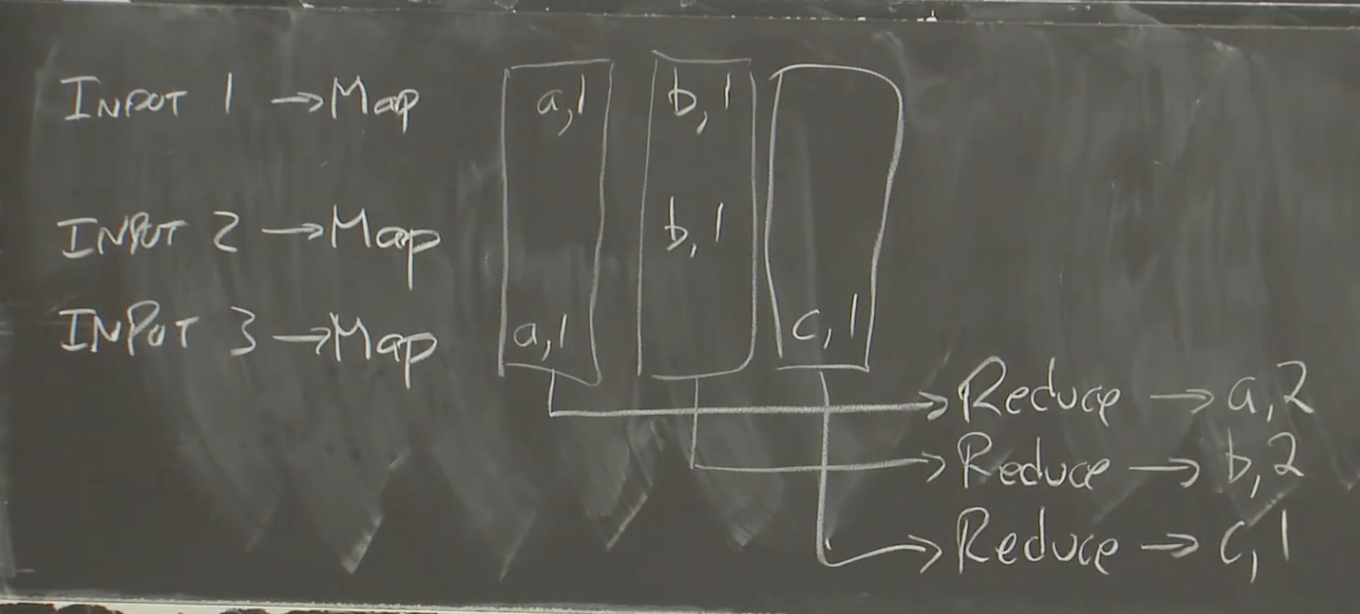 INPUT 1 → Map a,1 b,1
INPUT 2 → Map b,1
INPUT 3 → Map a,1 c,1
→ Reduce → a,2
→ Reduce → b,2
→ Reduce → c,1